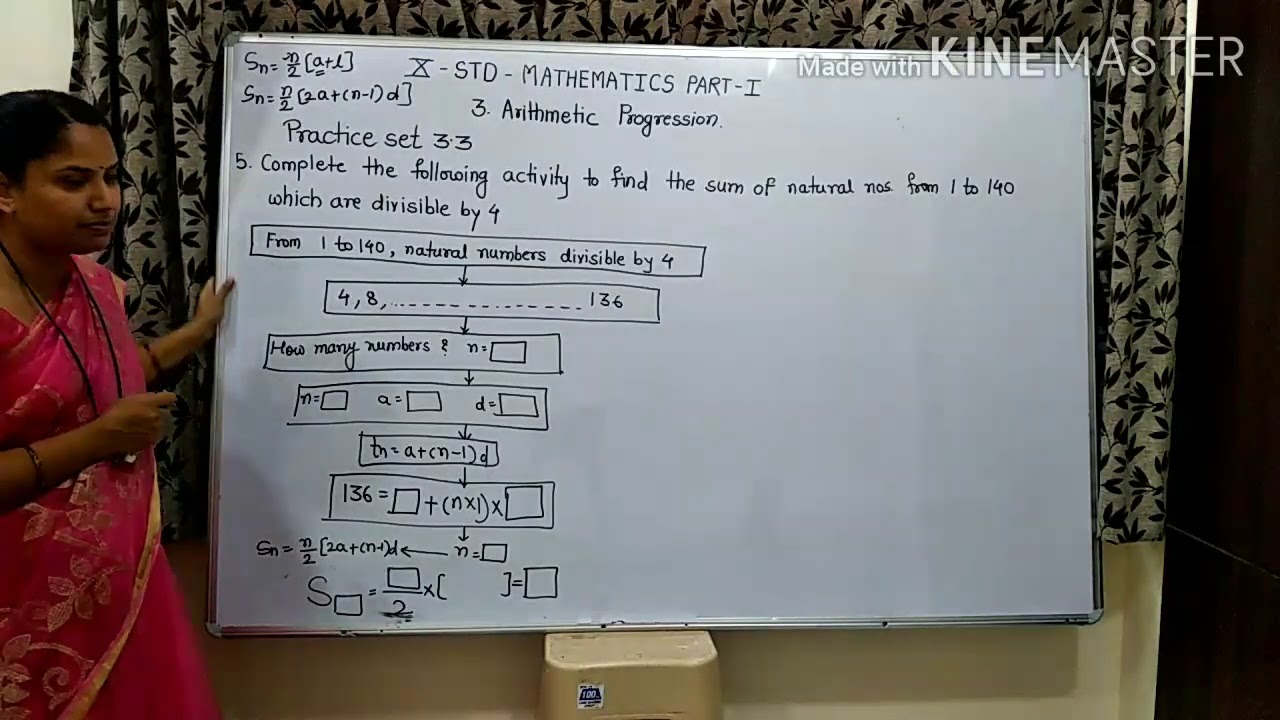 Made with KINEMASTER
Sn = n/2 [a+l]
X - STD - MATHEMATICS PART-I
Sn = n/2 [2a+(n-1)d]
3. Arithmetic Progression.
Practice set 3.3
5. Complete the following activity to find the sum of natural nos. from 1 to 140
which are divisible by 4
From 1 to 140, natural numbers divisible by 4
4, 8, ------------------ 136
How many numbers ? n=□
n=□ a=□ d=□
tn = a+(n-1)d
136 = □ + (n×1)×□
Sn = n/2 [2a+(n-1)d ← n=□
S□ = □/2 ×[ ]=□
100